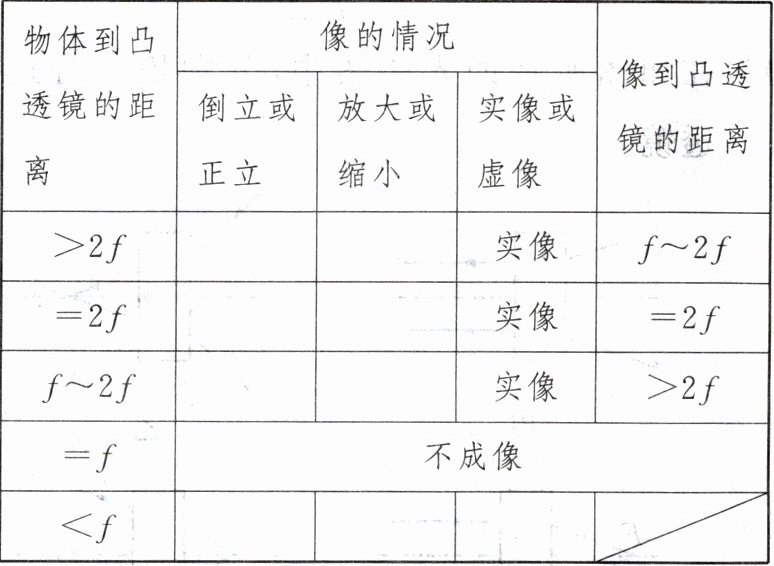 物体到凸
透镜的距
离
像的情况
像到凸透
镜的距离
倒立或
正立
放大或
缩小
实像或
虚像
>2f
实像
f～2f
=2f
实像
=2f
f～2f
实像
>2f
=f
不成像
<f